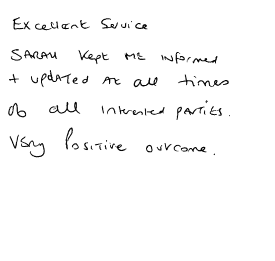 Excellent Service
SARAH Kept ME informed
+ updated At all times
of all interested parties.
Very Positive outcome.